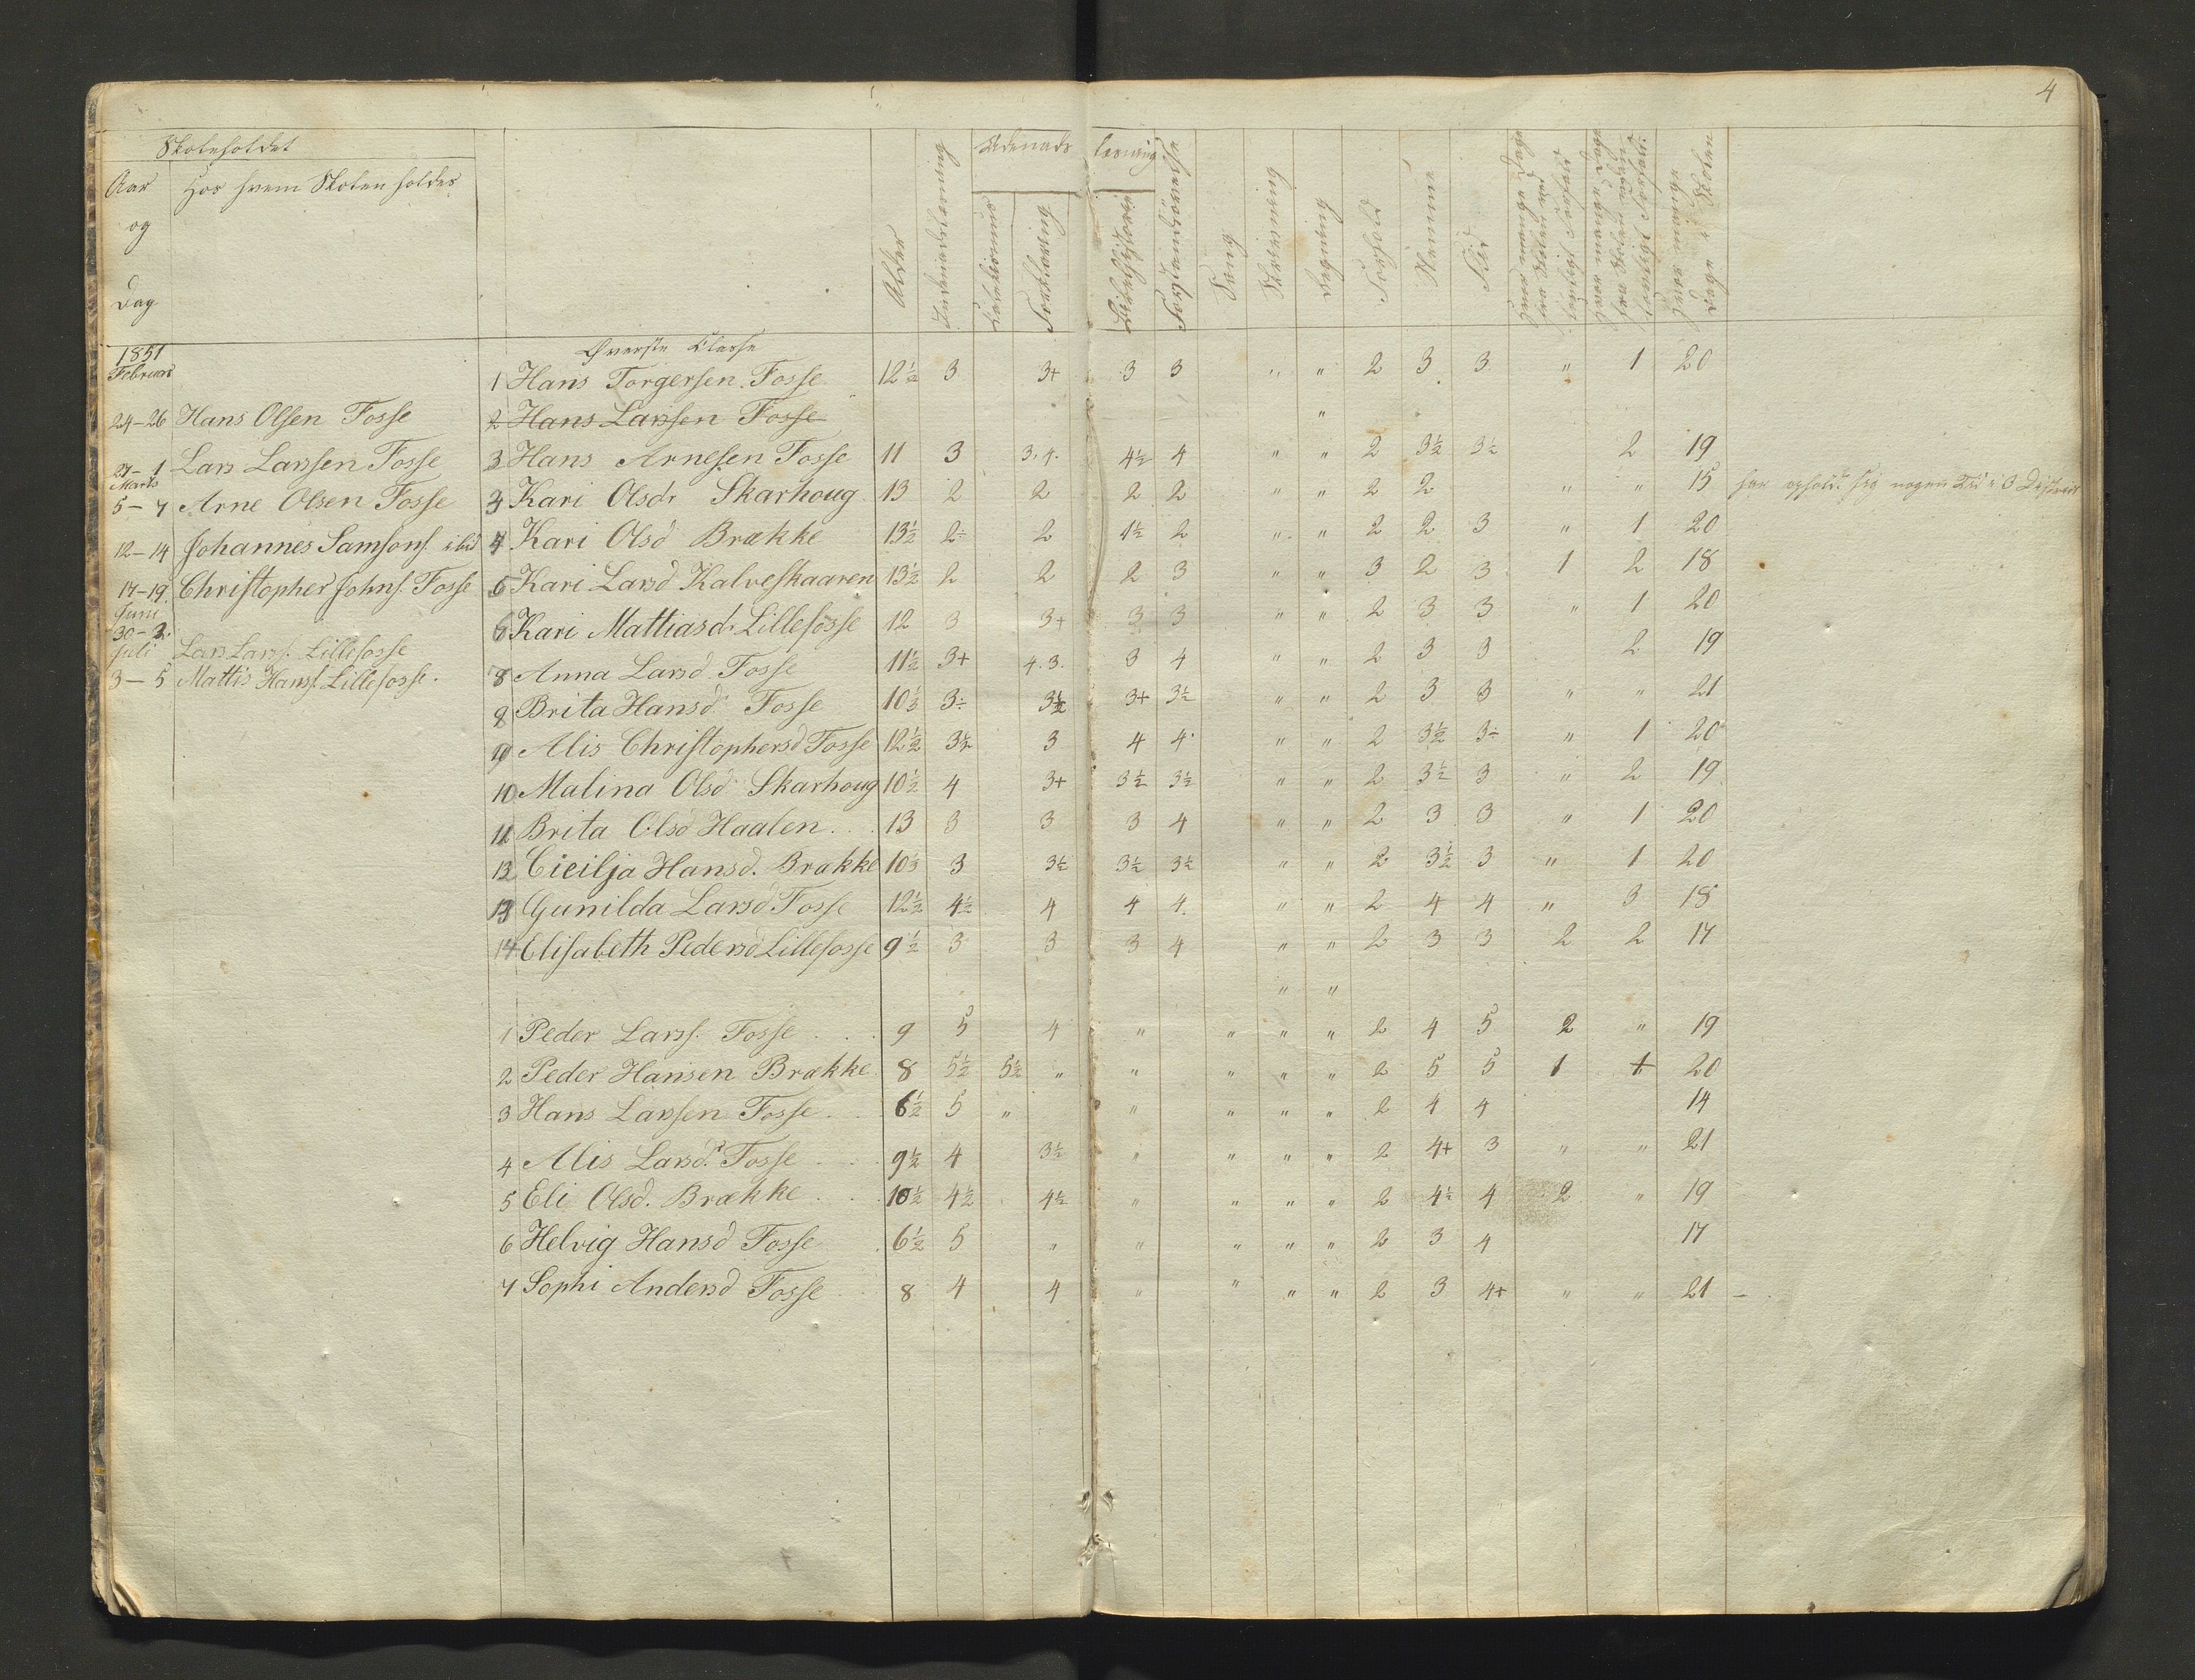 4
Skoleholdet
Aar og Dag
Hos hvem Skolen holdes
Alder
Indenadslæsning
Udenadslæsning
Catekismus
Forklaring
Bibelhistorie
Forstandsøvelse
Sang
Skrivning
Regning
Forhold
Nemme
Flid
Hvor mange Dage fra Skolen ved lovligt Forfald
Hvor mange Dage fra Skolen uden lovligt Forfald
Hvor mange Dage i Skolen
1851
Februar
24-26 Hans Olsen Fosse
27-1 Lars Larssen Fosse
Marts
5-7 Arne Olsen Fosse
12-14 Johannes Samsons. ibid
17-19 Christopher Johns. Fosse
Juni
30-2. Lars Larss. Lillefosse
Juli
3-5 Mattis Hanss. Lillefosse.
Øverste Classe
1 Hans Torgersen Fosse 12½ 3 3+ 3 3 " " 2 3 3 " 1 20
2 Hans Larssen Fosse "
3 Hans Arnesen Fosse 11 3 3.4. 4½ 4 " " 2 3½ 3½ 2 19
3 Kari Olsdr Skarhoug 13 2 2 2 2 " " 2 2 " " 15 har opholdt sig nogen Tid i 3 District
4 Kari Olsd Brække 13½ 2÷ 2 1½ 2 " " 2 2 3 " 1 20
5 Kari Larsd Kalveskaaren 13½ 2 2 2 3 " " 3 2 3 1 2 18
6 Kari Mattiasdr Lillefosse 12 3 3+ 3 3 " " 2 3 3 " 1 20
8 Anna Larsd Fosse 11½ 3+ 4.3. 3 4 " " 2 3 3 2 19
9 Brita Hansd Fosse 10⅓ 3÷ 3½ 3+ 3½ " " 2 3 3 " " 21
9 Alis Christophersd Fosse 12½ 3½ 3 4 4 " " 2 3½ 3÷ " 1 20
10 Malina Olsd Skarhoug 10½ 4 3+ 3½ 3½ " " 2 3½ 3 " 2 19
11 Brita Olsd Haalen 13 3 3 3 4 " " 2 3 3 " 1 20
12 Cicilja Hansd. Brække 10⅓ 3 3½ 3½ 3½ " " 2 3½ 3 " 1 20
13 Gunilda Larsd Fosse 12½ 4½ 4 4 4. " " 2 4 4 " 3 18
14 Elisabeth Pedersd Lillefosse 9½ 3 3 3 4 " " 2 3 3 2 2 17
" "
1 Peder Larss. Fosse 9 5 4 " " " " 2 4 5 2 " 19
2 Peder Hansen Brække 8 5½ 5½ " " " " " 2 5 5 1 1 20
3 Hans Larssen Fosse 6½ 5 " " " " " 2 4 4 14
4 Alis Larsdr Fosse 9½ 4 3½ " " " " 2 4+ 3 " " 21
5 Eli Olsd. Brække 10½ 4½ 4½ " " " " 2 4½ 4 2 " 19
6 Helvig Hansd Fosse 6½ 5 " " " " " 2 3 4 17
7 Sophi Andersd Fosse 8 4 4 " " " " 2 3 4+ " " 21